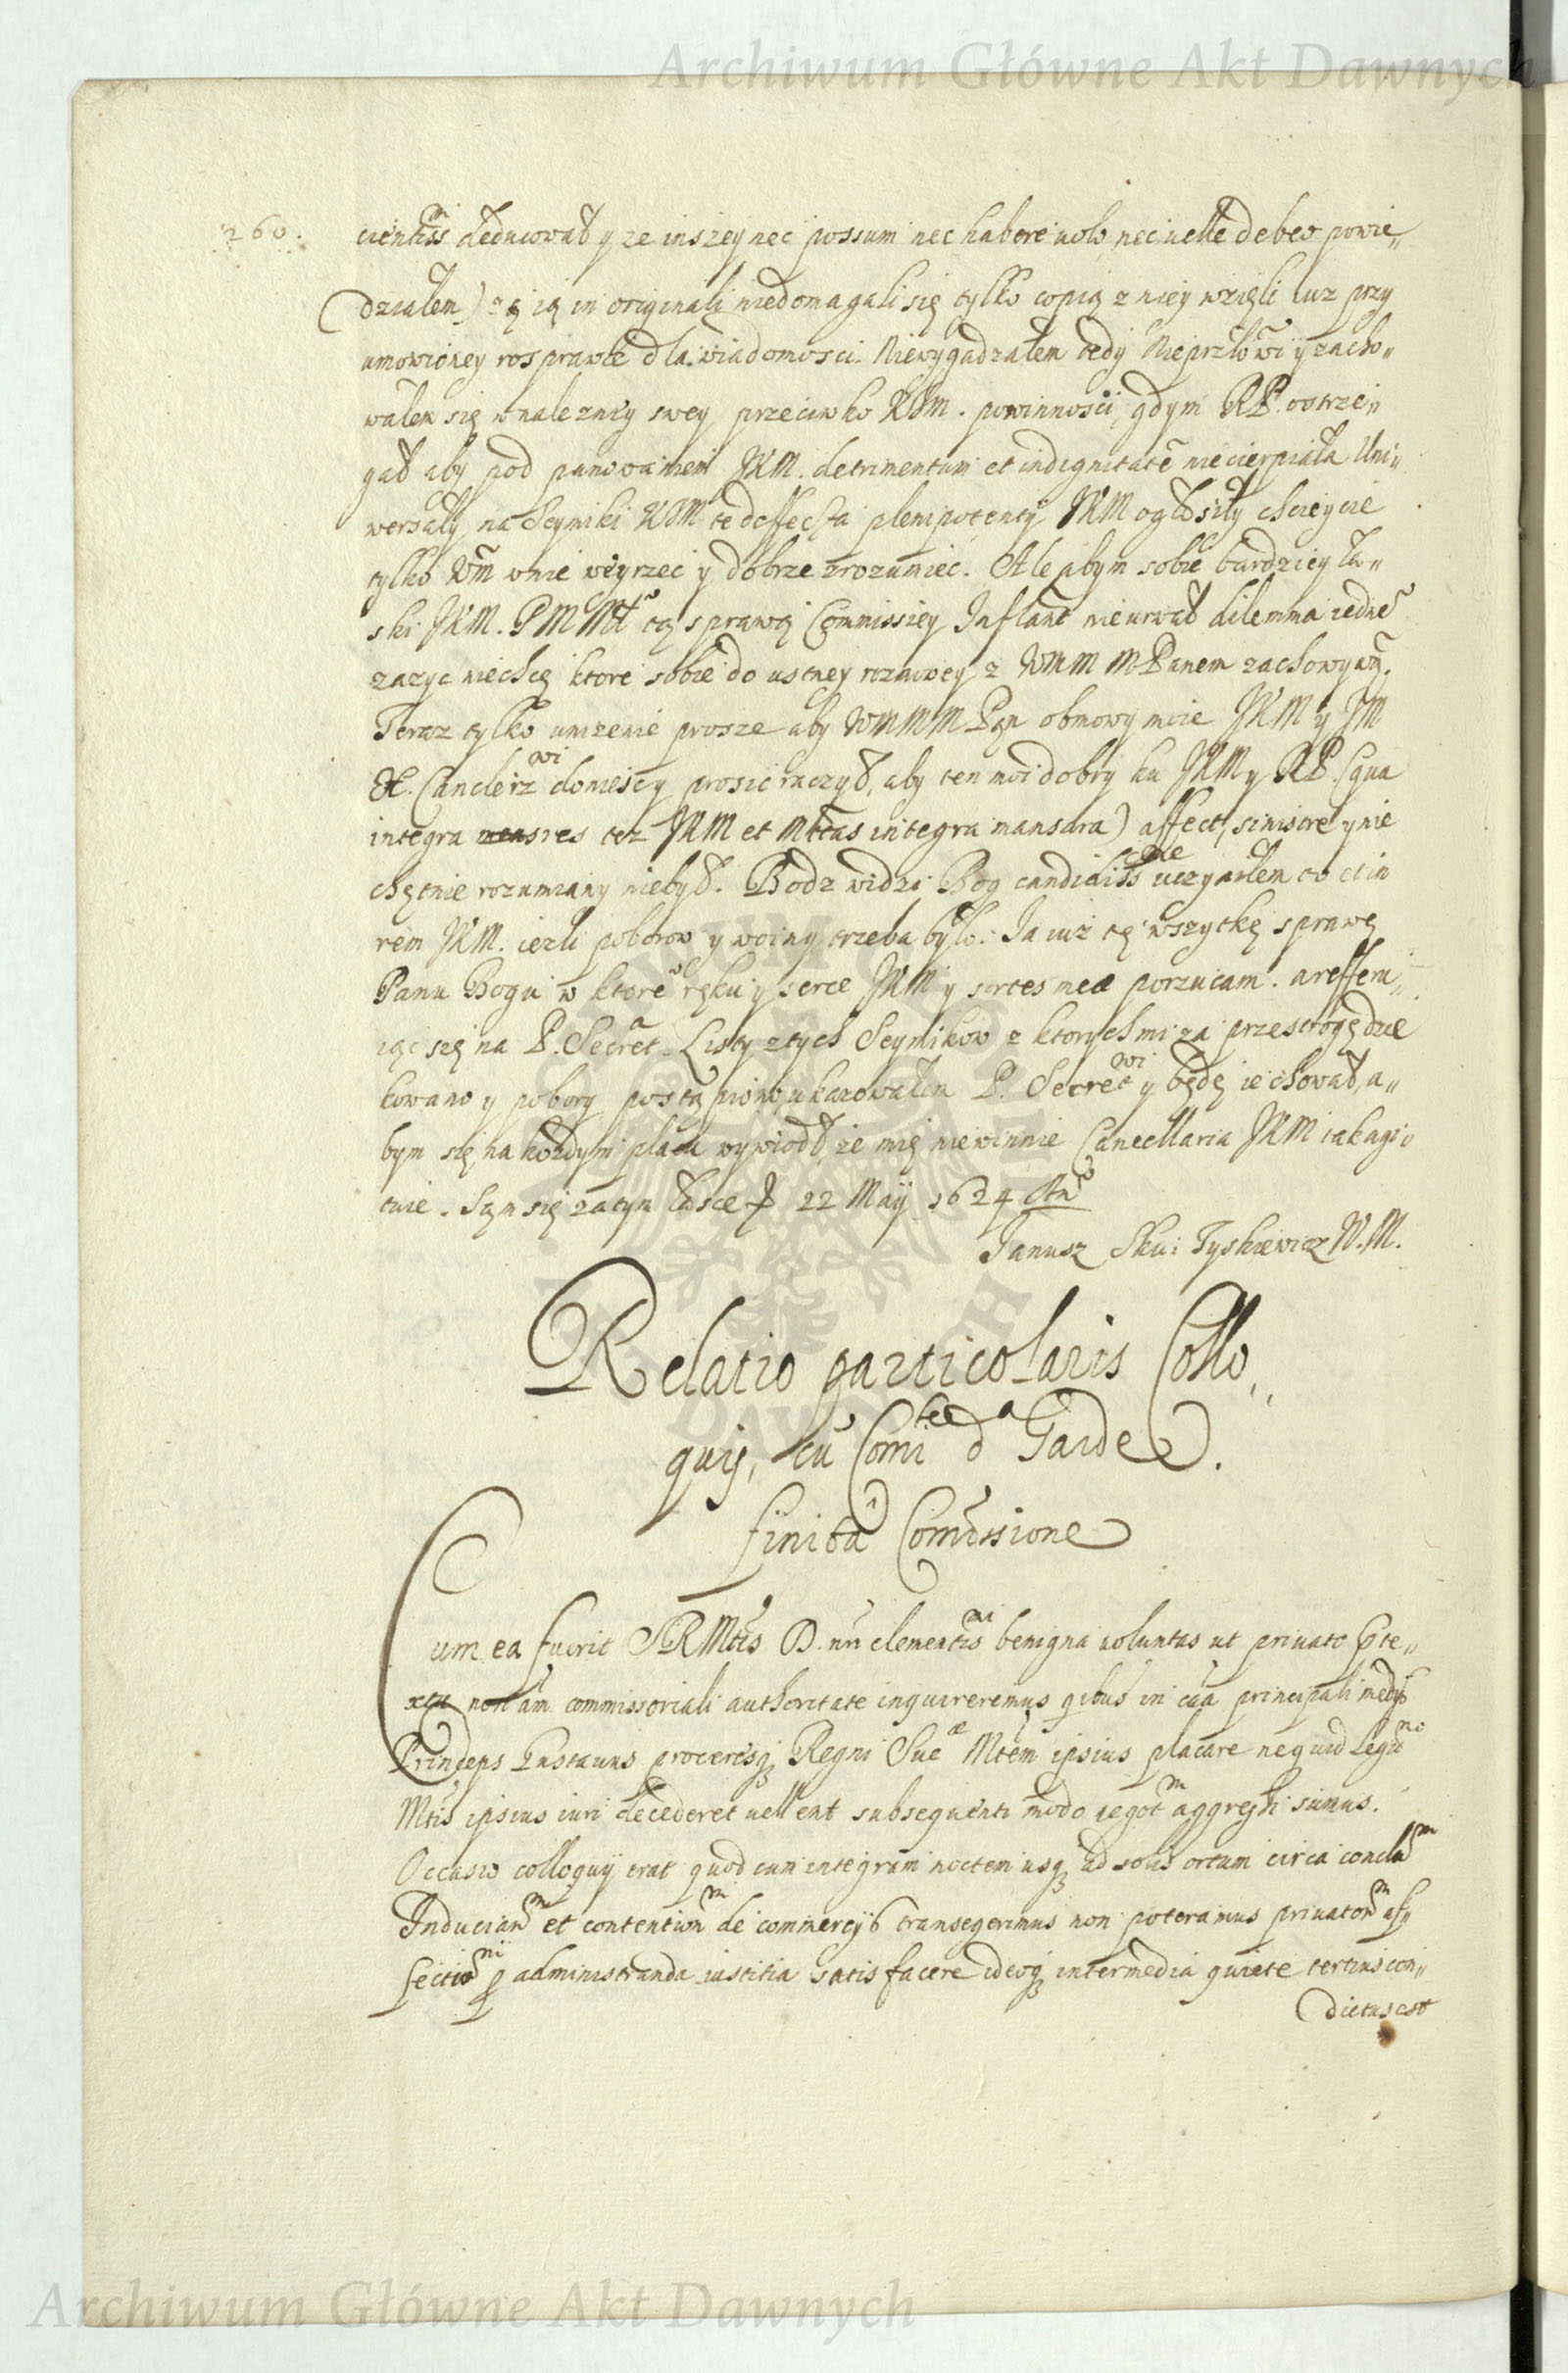 Archiwum Główne Akt Dawnych
260.
deducował y ze inszey nec possum nec habere uolo, nec uelle debeo powie„
działem) ią in originali niedomagali się tylko copią z niey wzięli iuz przy
umowioney rosprawie dla wiadomosci. Niewygadzałem tedy Nieprzłowi y zacho„
wałem się w należney swey przeciwko KJM. powinnosci, gdym RP. ostrze„
gał aby pod panowaniem JKM. detrimentum et indignitatē niecierpiała Uni„
wersały na Seymiki KJM te deffecta plenipotentÿ JKM ogłosiły chcieycie
tylko Wm w nie weyrzec y dobrze zrozumiec. Ale abym sobie bardziey ła„
ski JKM. PMMł tą sprawą Commissiey Inflant nieurwał dilemma iedne
zazyc niechcę ktore sobie do ustney rozmowy z WMM MPanem zachowywā.
Teraz tylko unizenie prosze aby WMMM Pan obmowy moie JKM y JM
X. Canclerzwi donieść y prosic raczył, aby ten moi dobry ku JKM y RP. (qua
integra res tez JKM et Mttas integra mansura) affect, sinistre y nie
chętnie rozumiany niebył. Bodz widzi Bog candidiss uczyniłem to et in
rem JKM. iezli poborow y woiny trzeba było. Ia iuz tę wszytkę sprawę
Panu Bogu w ktore ręku y serce JKM y sortes mea porzucam. a refferu„
iąc się na P. Secret Listy z tych Seymikow z ktorych mi za przestrogę dzie
kowano y pobory postąpiono, ukazowałem P. Secretwi y będę ie chował, a„
bym się na kozdym placu wywiodł, że mię niewinnie Cancellaria JKM iakagi„
tuie. Sąm się zatym 22 Maÿ 1624 An
Janusz Skui Tyszkiewicz W.M.
Relatio particolaris Collo„
quij, cū Comite d a Garde.
finita Comissione
Cum ea fuerit SRMtis D. nri clementissmi benigna uoluntas ut priuato prte„
xtu non tam commissoriali authoritate inquireremus qibus in cāa principali medijs
Princeps Gustauus proceresq Regni Sueæ Mtem ipsius placare ne quid Legitmo
Mtis ipsius iuri decederet uellent subsequenti modo negotm aggressi sumus.
Occasio colloquij erat quod cum integram noctem usq ad solis ortum circa conclm
Induciarm et contentionm de commercijs transegerimus non poteramus priuatorm
administranda iustitia satisfacere ideoq intermedia quiete tertius con„
dictus est
Archiwum Główne Akt Dawnych